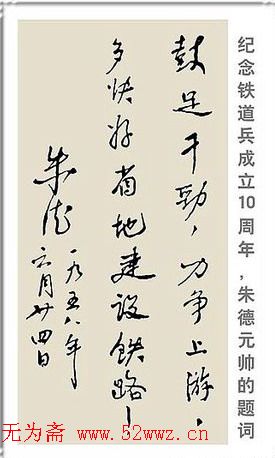 纪念铁道兵成立10周年，朱德元帅的题词
鼓足干劲，力争上游，
多快好省地建设铁路！
朱德
一九五八年
六月廿四日
无为斋 www.52wwz.cn